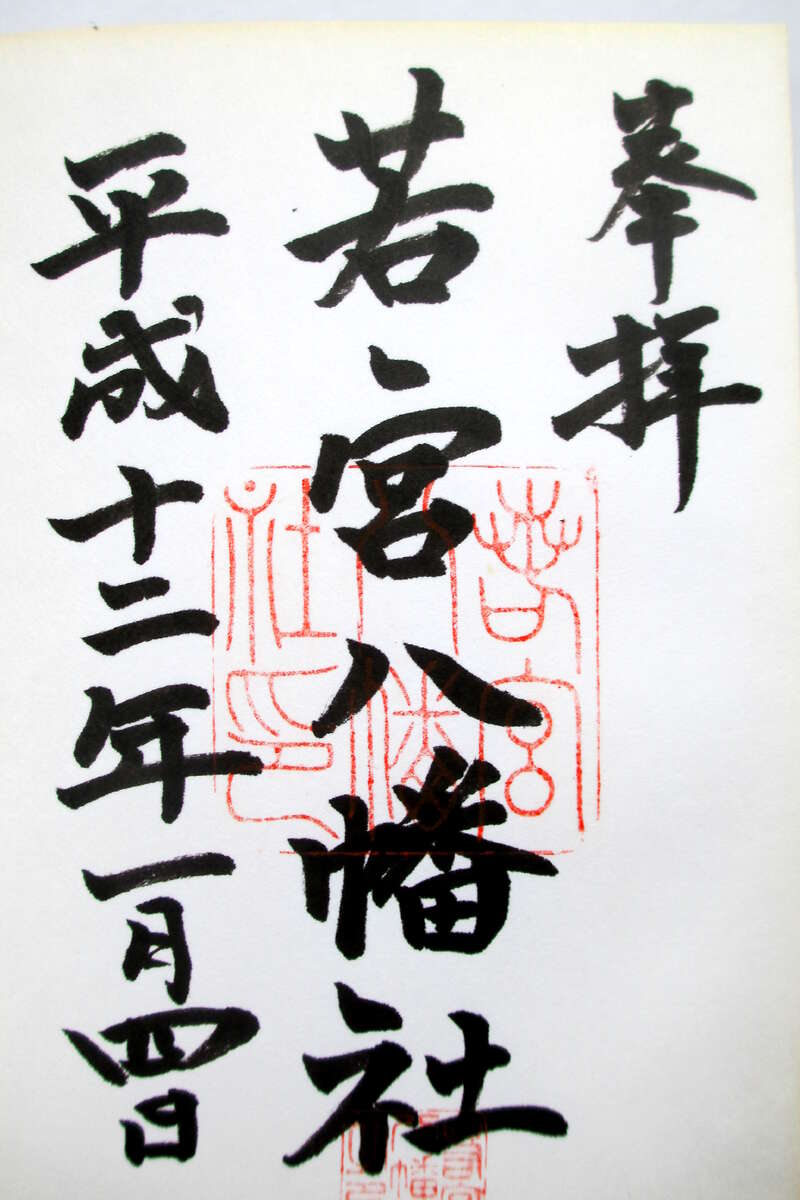 奉拝
若宮八幡社
平成十二年一月四日
若宮
八幡
社印